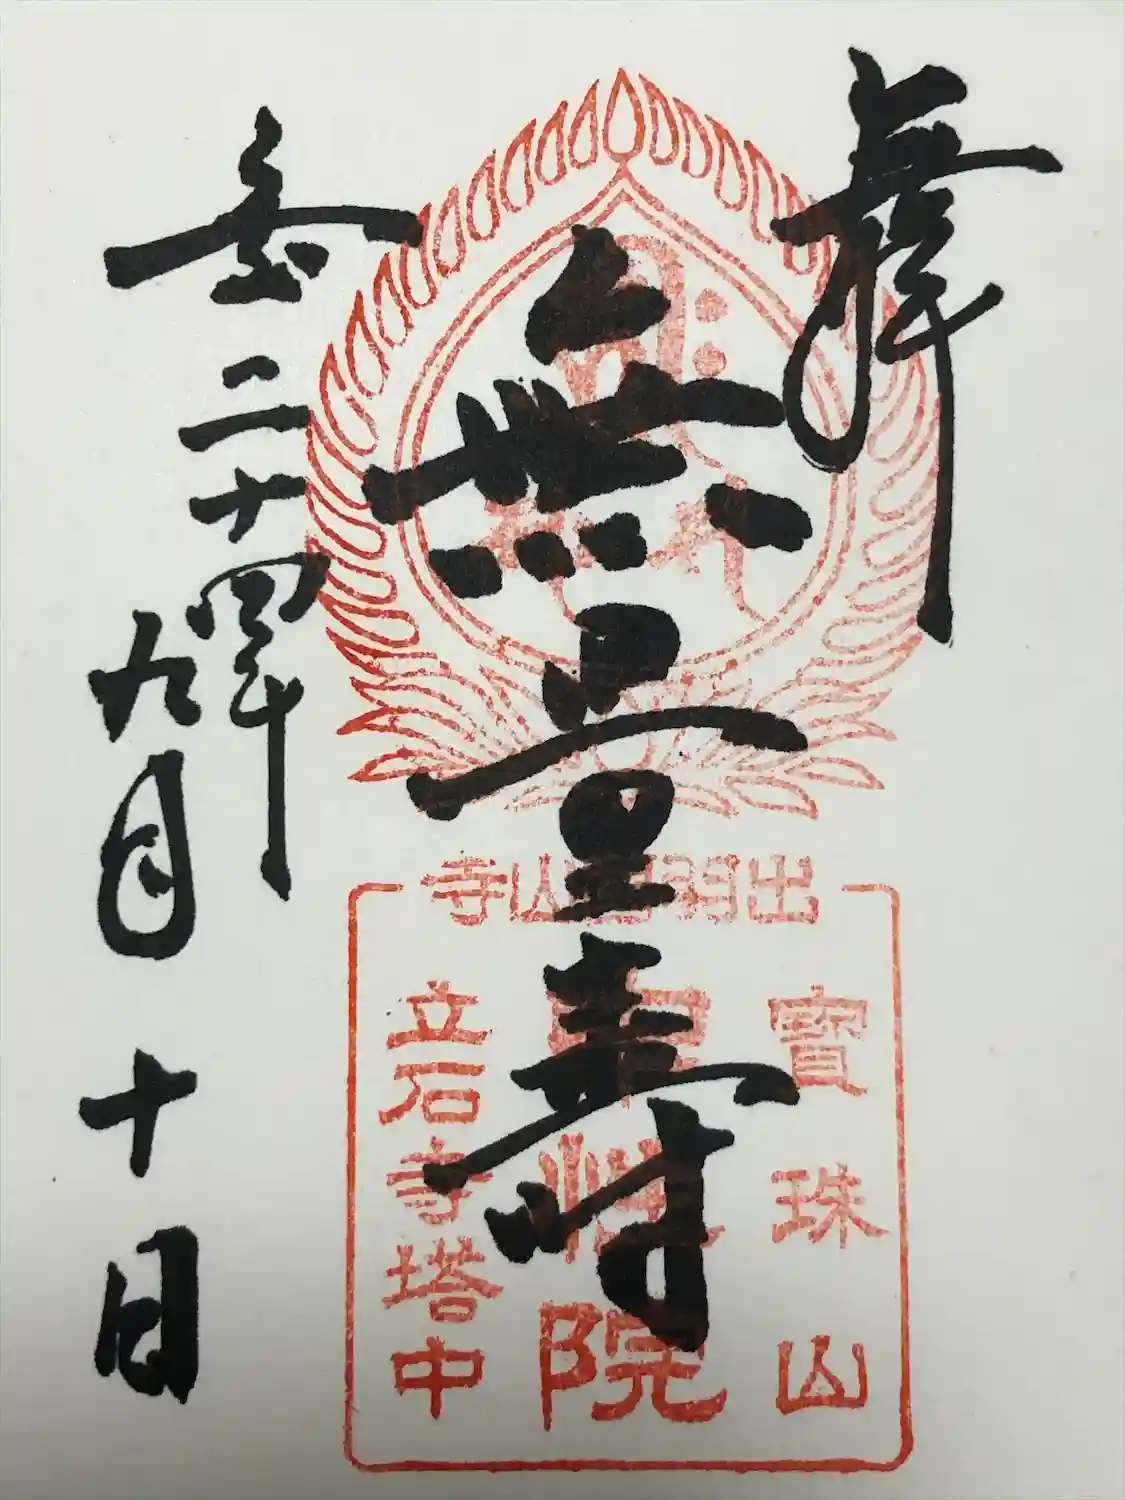 奉拝
無量壽
二十四年
九月十日
出羽山寺
寶珠山
中性院
立石寺塔中